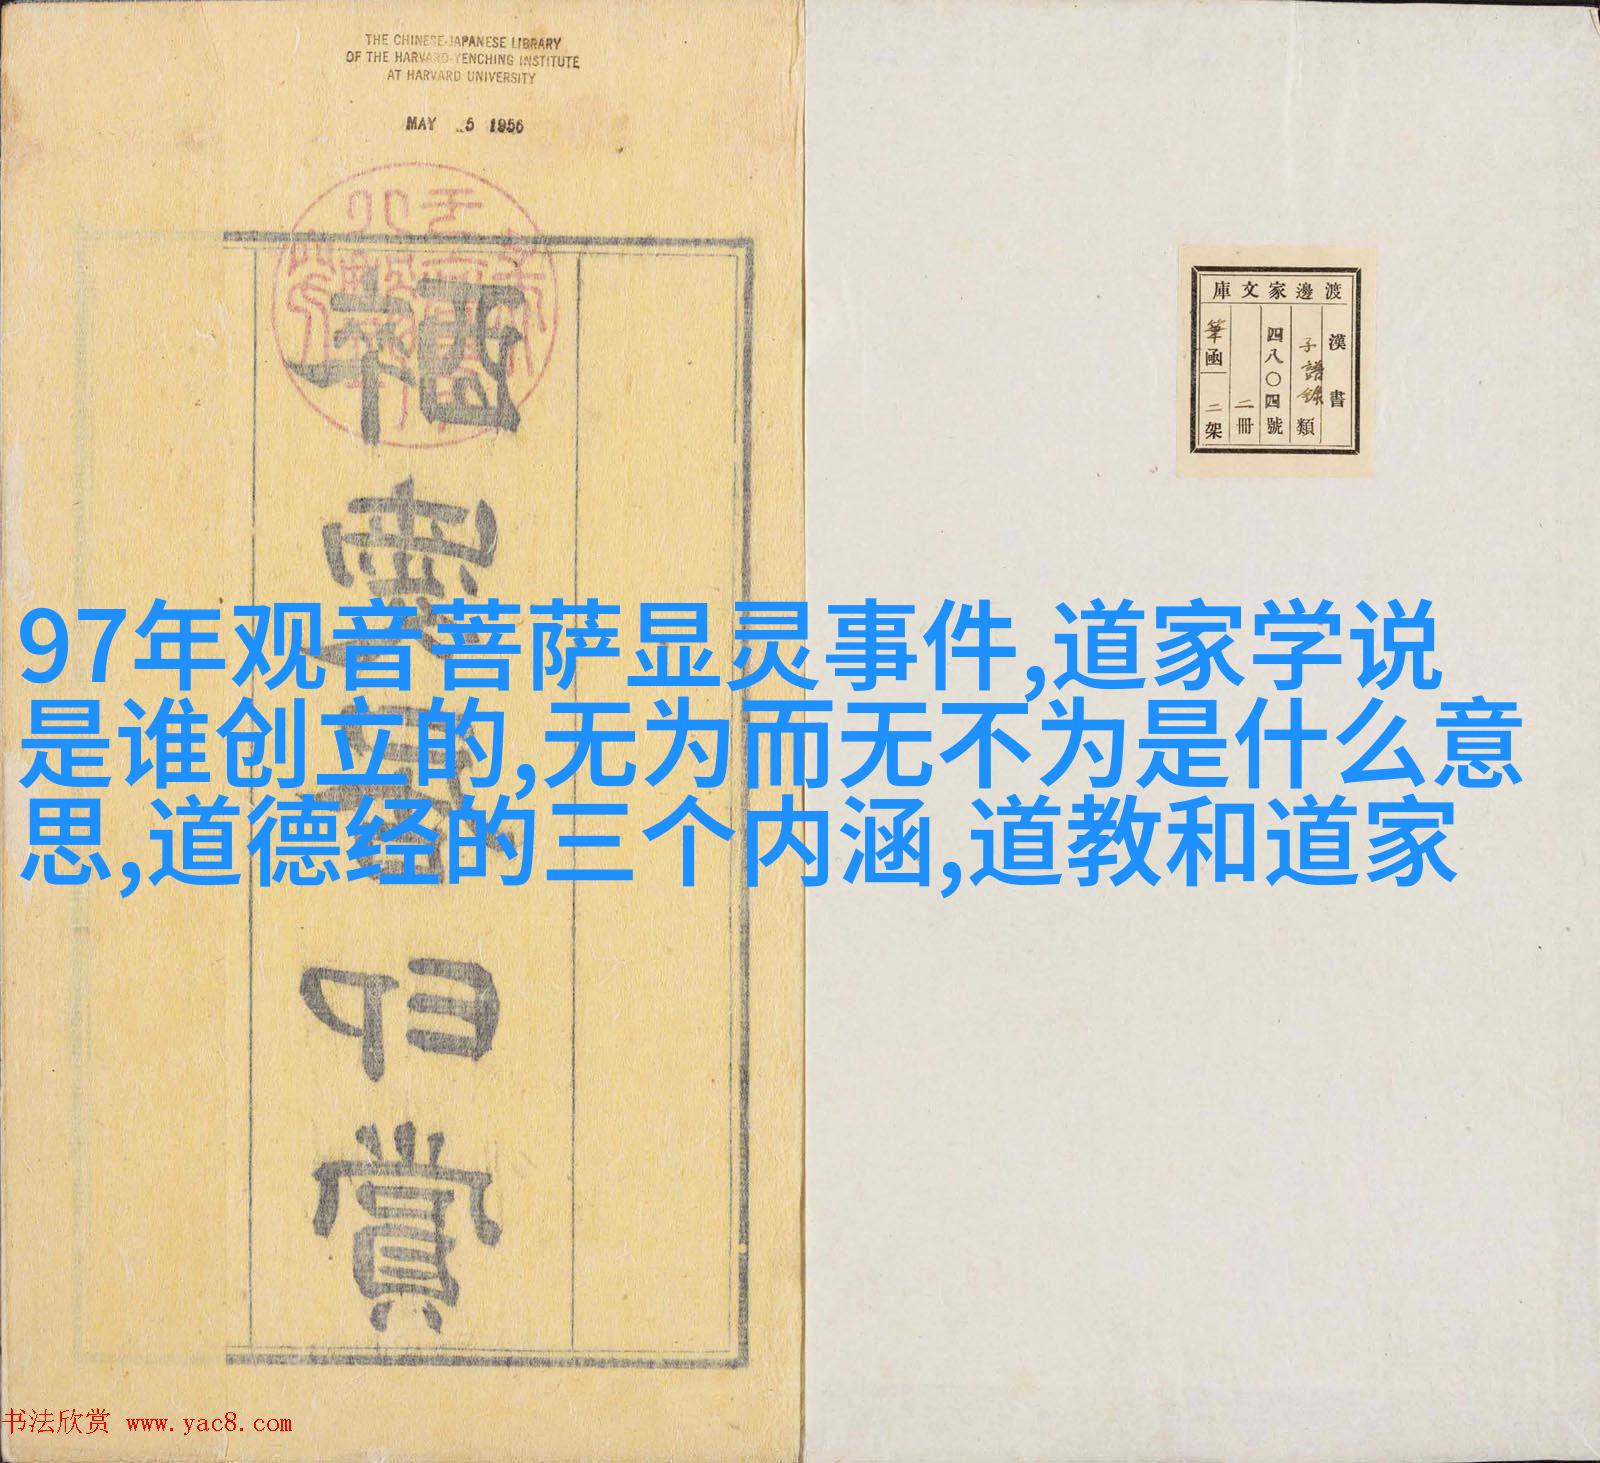 THE CHINESE-JAPANESE LIBRARY
OF THE HARVARD-YENCHING INSTITUTE
AT HARVARD UNIVERSITY
MAY 5 1956
印賞
渡邊家文庫
漢書
子語錄類
四八〇四號
二冊
筆函二架
97年观音菩萨显灵事件,道家学说
是谁创立的,无为而无不为是什么意
思,道德经的三个内涵,道教和道家
书法欣赏 www.yac8.com